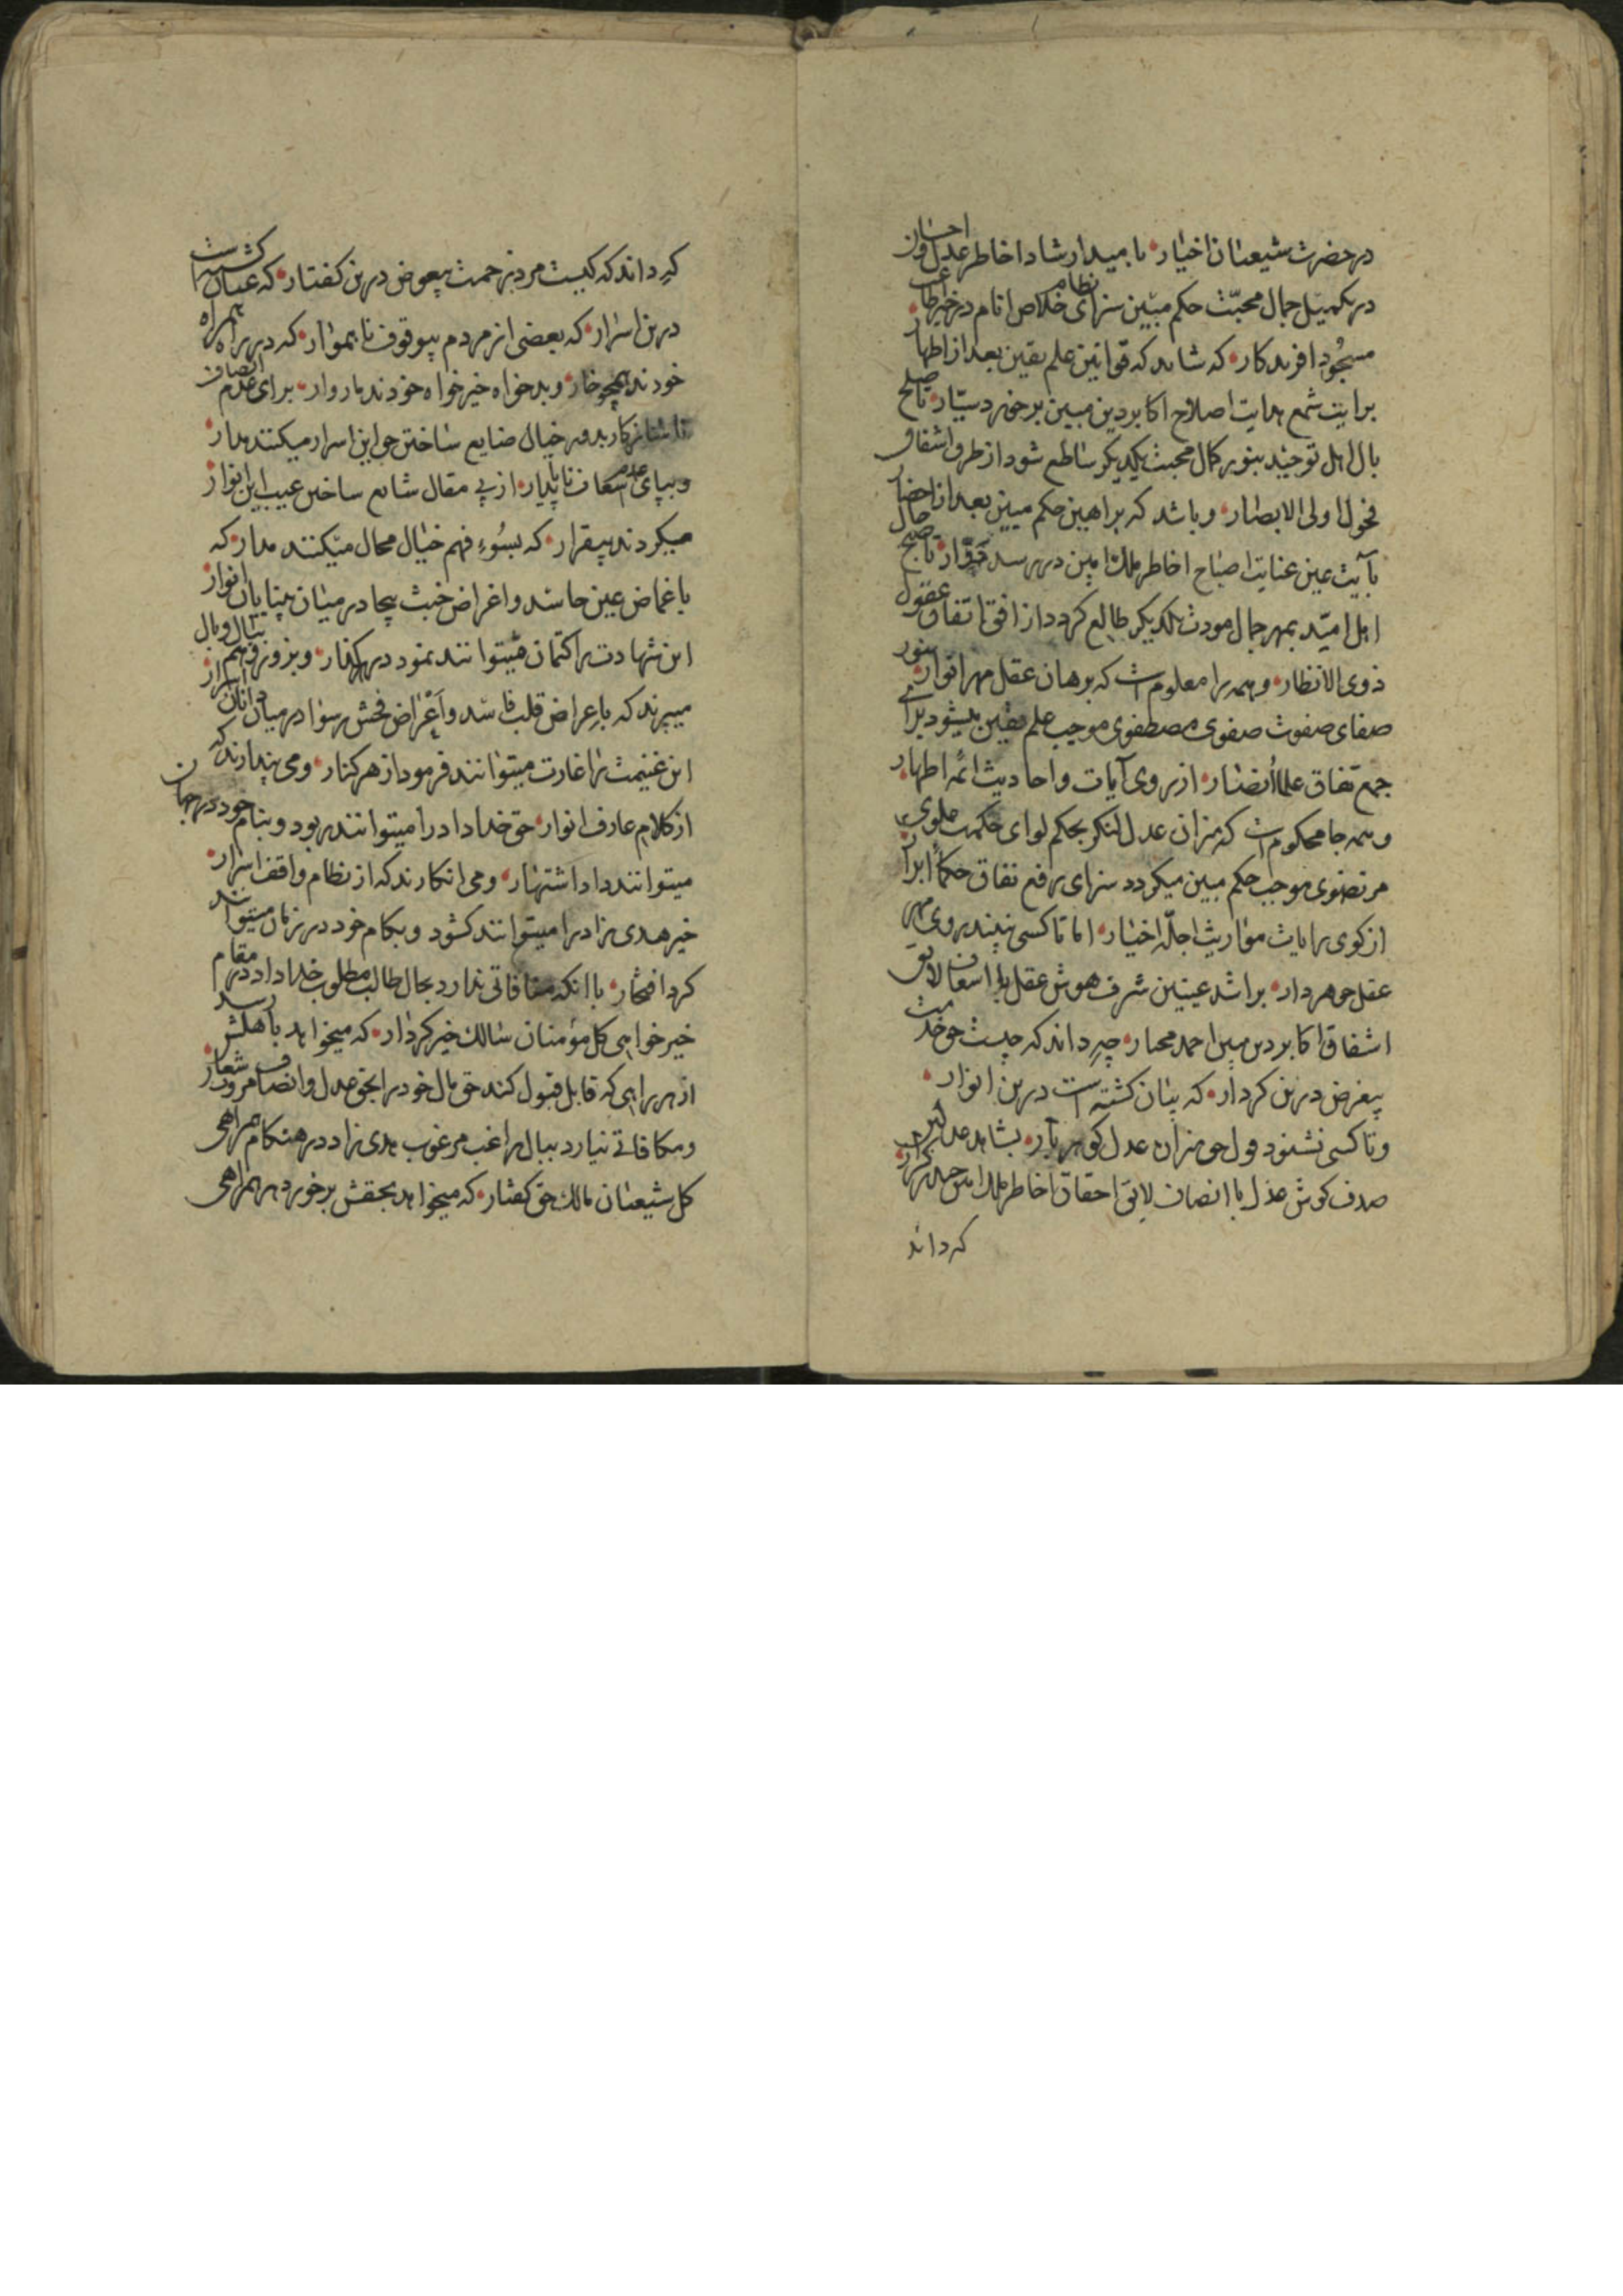 در حضرت شیعیان اخیار بامید ارشاد اخاطر عدل و احسان
در تکمیل جمال محبّت حکم مبین سزای خلاص انام در خیر
مسجود افریدکار که شاید که قوانین علم یقین بعد از اظهار
برایت شمع هدایت اصلاح اکابر دین مبین برخورد ستّار تا صلح
بال اهل توحید بنور کمال محبت یکدیگر ساطع شود از طرف اشفاق
فحول اولی الابصار و باشد که براهین حکم مبین بعد از احضار
بآیت عین عنایت اصباح اخاطر ملک امین در رسد تا صبح حال
اهل امیّد بمهر جمال مودت یکدیگر طالع گردد از افق اتفاق عقول
ذوی الانظار و همه را معلوم است که برهان عقل مهر انوار بنور
صفای صفوت صفوی مصطفوی موجب علم یقین میشود برای
جمع تفاق علماً انصار از روی آیات و احادیث ائمه اطهار
و همه جا محکوم است که میزان عدل لنکر بحکم لوای حکمت علوی
مرتضوی موجب حکم مبین میگردد سزای رفع نفاق حکماً ابرار
از کوی رایات مواریث اجلّه اخیار اما تا کسی نبیند روی مهر
عقل جوهردار براشد عینین شرف هوش عقل با اسعاف لایق
اشفاق اکابر دین مبین احمد مختار چه داند که چیست حق خدمت
بیغرض درین کردار که پنهان کشته است درین انوار
و تا کسی نشنود قول حق میزان عدل کوهربار بشاهد عدل
صدف کوش عدل با انصاف لایق احقاق اخاطر ملک
که داند
که داند که کیست مرد زحمت بیعوض درین کفتار که عیان کشته است
درین اسرار که بعضی از مردم بیوقوف ناهموار که در راه همراه
خودند همچو خار و بدخواه خیرخواه خودند مار وار برای عدم انصاف
کار بدور خیال ضایع ساختن حق این اسرار میکنند مدار
و بپای عدم اسعاف ناپایدار از پی مقال شایع ساختن عیب این انوار
میکردند بیقرار که بسوءِ فهم خیال محال میکنند مدار که
با غماض عین حاسد و اغراض خبث بیجا در میان بینایان انوار
این شهادت را کتمان میتوانند نمود در هر کنار و بزور وهم بیال و بال
میبرند که باعراض قلب فاسد و اَعْراض فحش رسوا در میان دانایان اسرار
این غنیمت را غارت میتوانند فرمود از هر کنار و می پندارند که
از کلام عارف انوار حق خداداد را میتوانند ربود و بنام خود در جهان
میتوانند داد اشتهار و می انکارند که از نظام واقف اسرار
خیر هدی زاد را میتوانند کشود و بکام خود در زمان میتوانند
کرد افتخار با انکه منافاتی ندارد بحال طالب مطلوب خداداد در مقام
خیرخواهی کل مؤمنان سالک خیر کردار که میخواهد باهلش رسد
از هر راهی که قابل قبول کند حق مال خود را بحق عدل و انصاف مروت شعار
و مکافاتی نیارد ببال راغب مرغوب هدی زاد در هنکام همراهی
کل شیعیان مالک حق کفتار که میخواهد بحقش برخورد هر همراهی